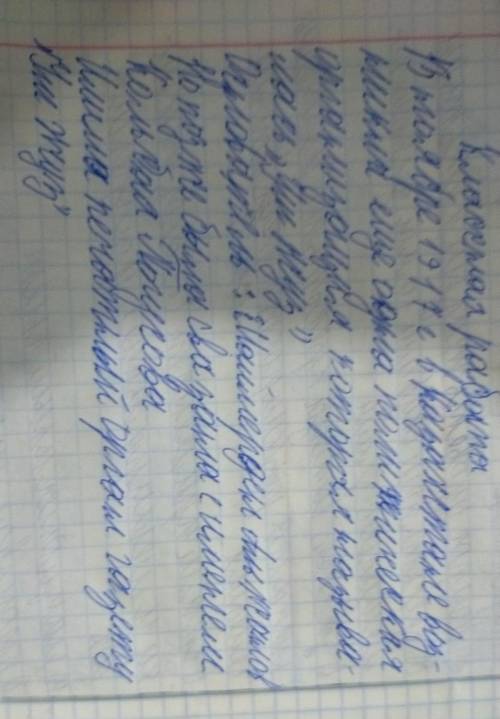 Классная работа
В ноябре 1917 г в Казахстане воз-
никла еще одна политическая
организация которая называ-
лась "Уш жуз"
Основатель: Шаймерден Альжанов
Но позже была связана с именем
Кольбая Тогусова
Имела печатный орган газету
"Уш жуз"